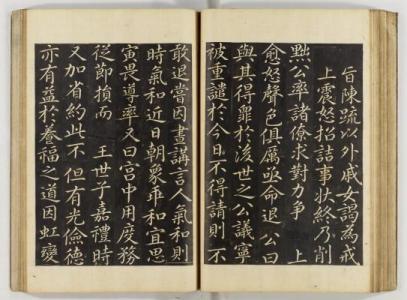 旨陳疏以外戚女謁為戒
上震怒招詰事狀終乃削
黜公率諸僚求對力爭 上
愈怒聲色俱厲亟命退公曰
與其得罪於後世之公議寧
被重譴於今日不得請則不
敢退嘗因晝講言人氣和則
時氣和近日朝象乖和宜思
寅畏導率又曰宮中用度務
從節損而 王世子嘉禮時
又加省約此不但有光儉德
亦有益於養福之道因虹變